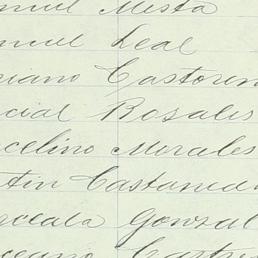 nuel Mesta
nuel Leal
iano Castoren
cial Rosales
rcelino Morales
tin Castaned
Gonzal